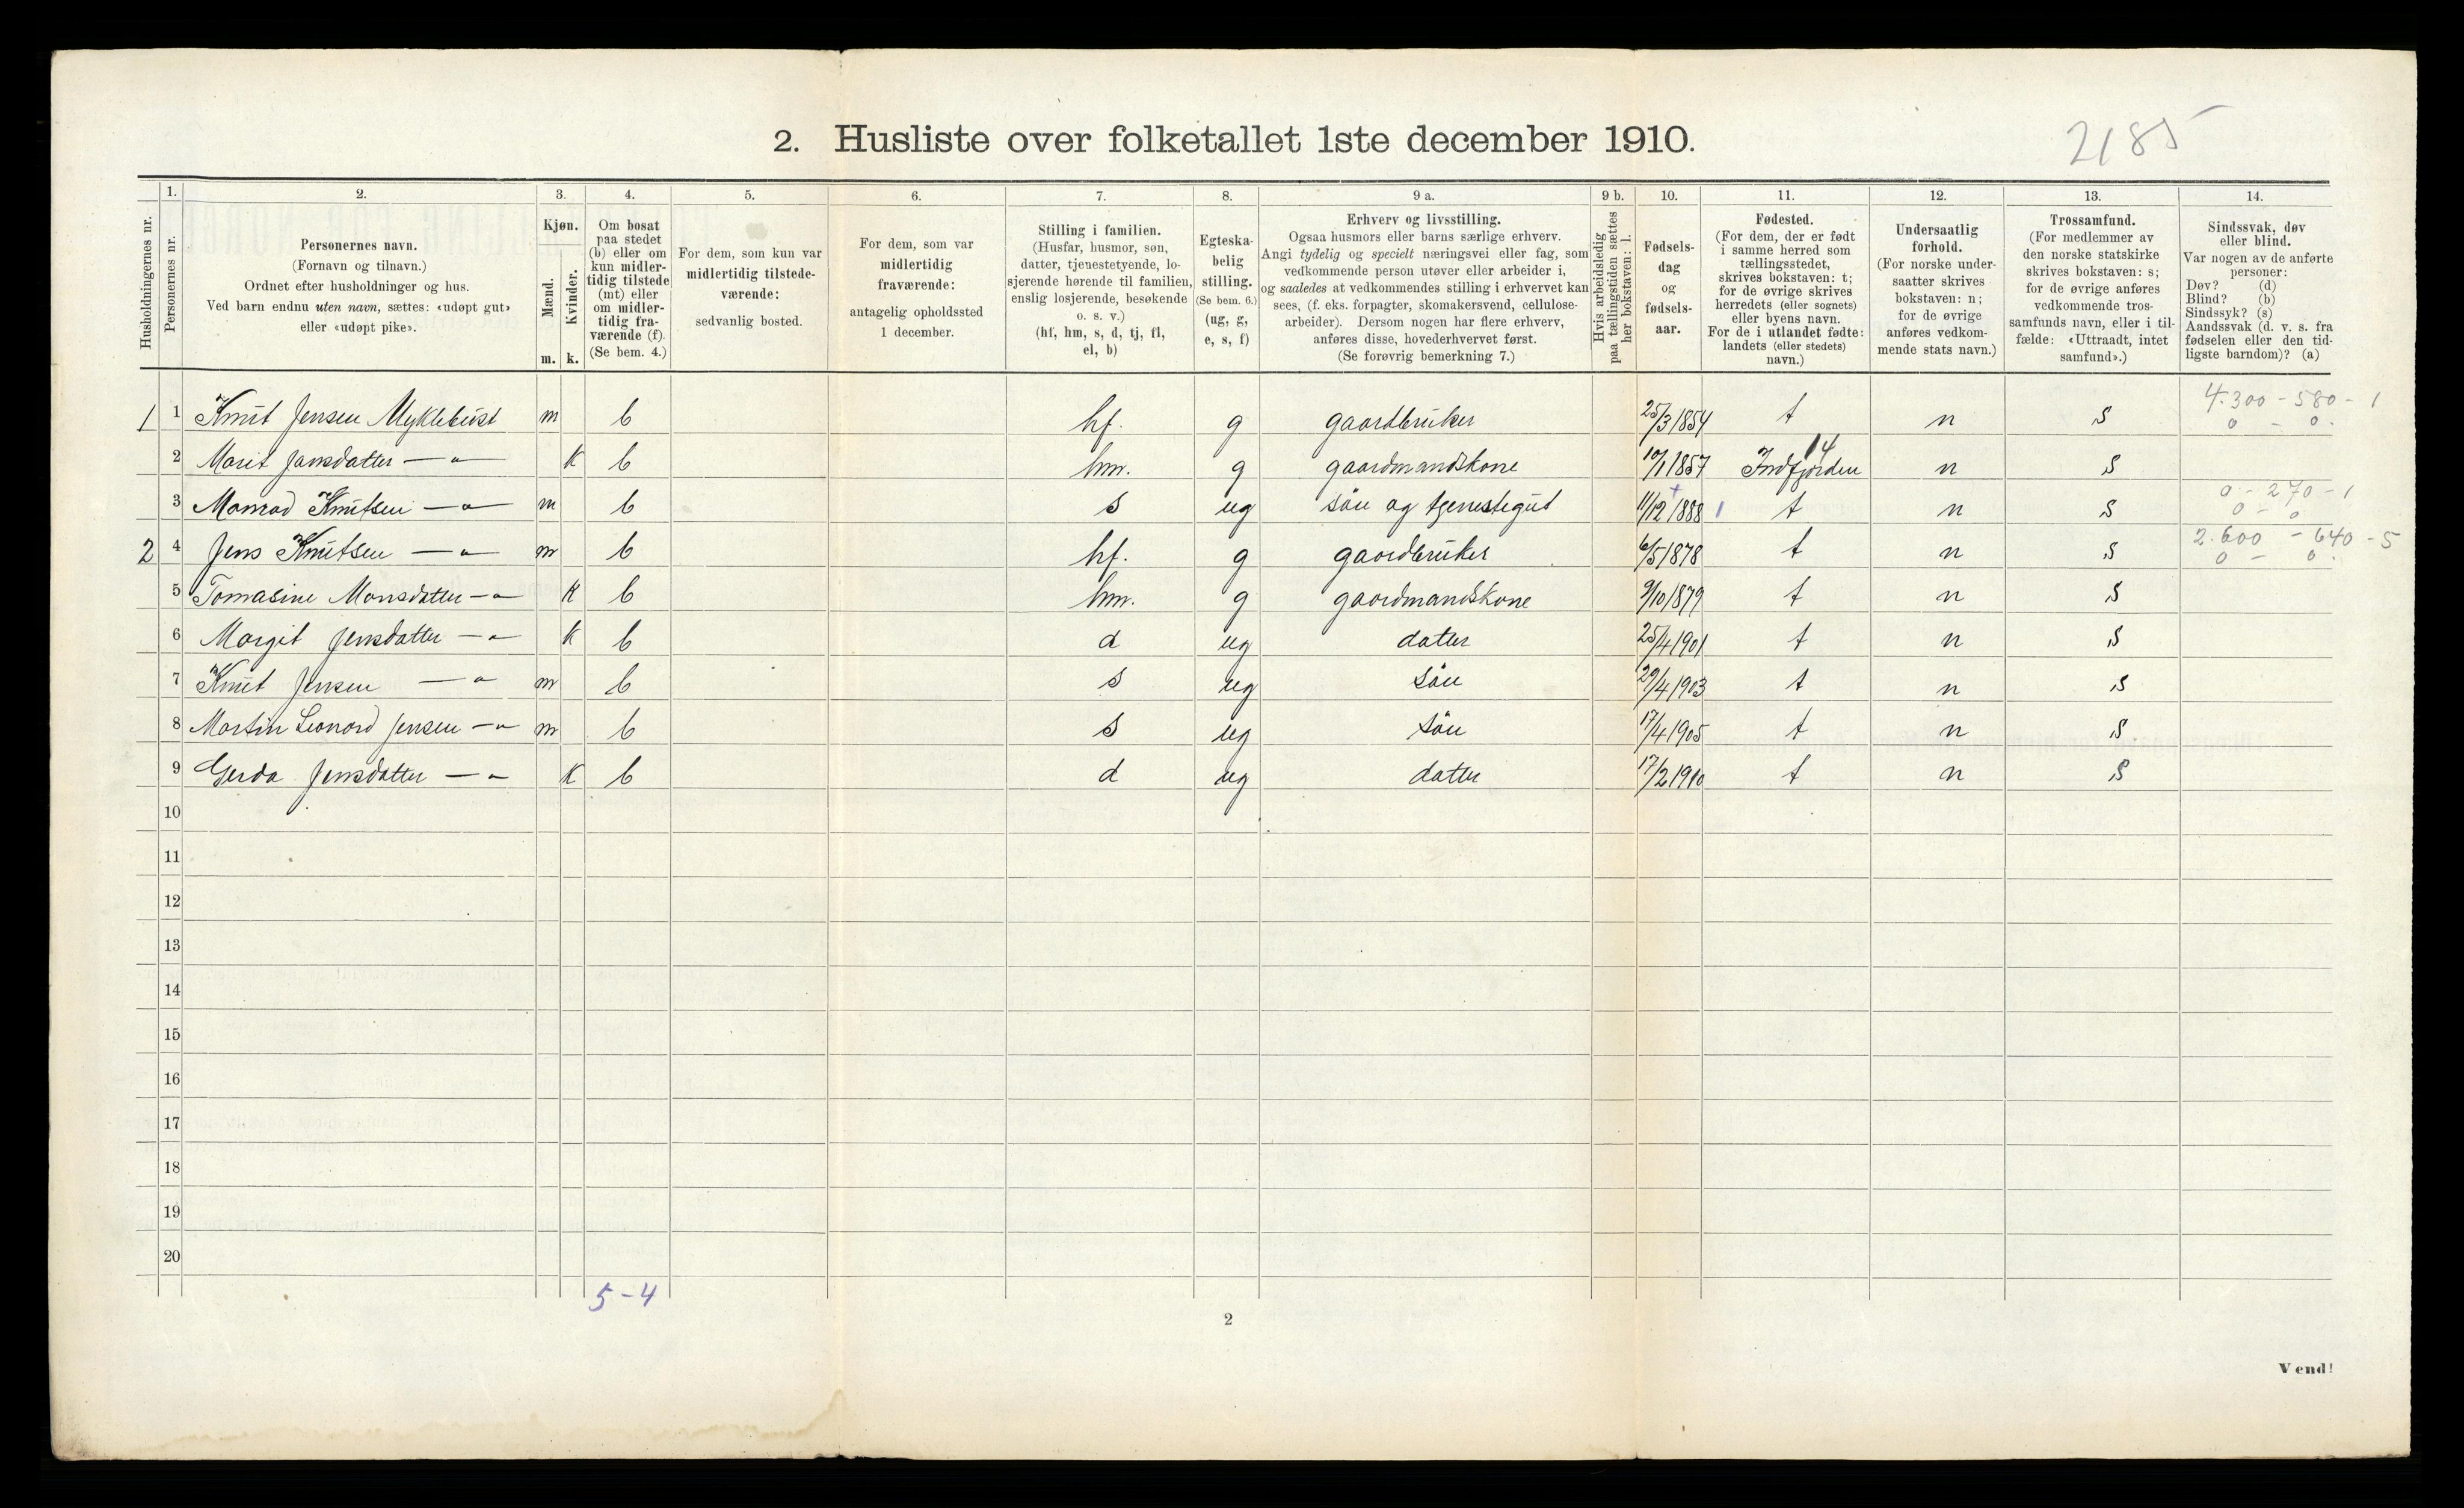 2. Husliste over folketallet 1ste december 1910.
2185
1. 2. 3. 4. 5. 6. 7. 8. 9 a. 9 b. 10. 11. 12. 13. 14.
Husholdningernes nr.
Personernes nr.
Personernes navn.
(Fornavn og tilnavn.)
Ordnet efter husholdninger og hus.
Ved barn endnu uten navn, sættes: «udøpt gut»
eller «udøpt pike».
Kjøn.
Mænd.
Kvinder.
m. k.
Om bosat
paa stedet
(b) eller om
kun midler-
tidig tilstede
(mt) eller
om midler-
tidig fra-
værende (f).
(Se bem. 4.)
For dem, som kun var
midlertidig tilstede-
værende:
sedvanlig bosted.
For dem, som var
midlertidig
fraværende:
antagelig opholdssted
1 december.
Stilling i familien.
(Husfar, husmor, søn,
datter, tjenestetyende, lo-
sjerende hørende til familien,
enslig losjerende, besøkende
o. s. v.)
(hf, hm, s, d, tj, fl,
el, b)
Egteska-
belig
stilling.
(Se bem. 6.)
(ug, g,
e, s, f)
Erhverv og livsstilling.
Ogsaa husmors eller barns særlige erhverv.
Angi tydelig og specielt næringsvei eller fag, som
vedkommende person utøver eller arbeider i,
og saaledes at vedkommendes stilling i erhvervet kan
sees, (f. eks. forpagter, skomakersvend, cellulose-
arbeider). Dersom nogen har flere erhverv,
anføres disse, hovederhvervet først.
(Se forøvrig bemerkning 7.)
Hvis arbeidsledig
paa tællingstiden sættes
her bokstaven: l.
Fødsels-
dag
og
fødsels-
aar.
Fødested.
(For dem, der er født
i samme herred som
tællingsstedet,
skrives bokstaven: t;
for de øvrige skrives
herredets (eller sognets)
eller byens navn.
For de i utlandet fødte:
landets (eller stedets)
navn.)
Undersaatlig
forhold.
(For norske under-
saatter skrives
bokstaven: n;
for de øvrige
anføres vedkom-
mende stats navn.)
Trossamfund.
(For medlemmer av
den norske statskirke
skrives bokstaven: s;
for de øvrige anføres
vedkommende tros-
samfunds navn, eller i til-
fælde: «Uttraadt, intet
samfund».)
Sindssvak, døv
eller blind.
Var nogen av de anførte
personer:
Døv? (d)
Blind? (b)
Sindssyk? (s)
Aandssvak (d. v. s. fra
fødselen eller den tid-
ligste barndom)? (a)
4.300 - 580 - 1
1 1 Knut Jensen Myklebust m b hf. g gaardbruker 25/3 1854 t n S 0 - 0.
14
2 Marit Jansdatter — " — K b hm. g gaardmandskone 10/1 1857 Indfjorden n S
0 - 270 - 1
3 Monrad Knutsen — " — m b s ug sön og tjenestegut 11/12 1888 1 t n S 0 - 0
2.600 - 640 - 5
2 4 Jens Knutsen — " — m b hf. g gaardbruker 6/5 1878 t n S 0 - 0.
5 Tomasine Monsdatter — " — K b hm. g gaardmandskone 9/10 1879 t n S
6 Margit Jensdatter — " — K b d ug datter 25/4 1901 t n S
7 Knut Jensen — " — m b s ug sön 29/4 1903 t n S
8 Martin Leonard Jensen — " m b s ug sön 17/4 1905 t n S
9 Gerda Jensdatter — " — K b d ug datter 17/2 1910 t n S
10
11
12
13
14
15
16
17
18
19
20
5 - 4
2
Vend!